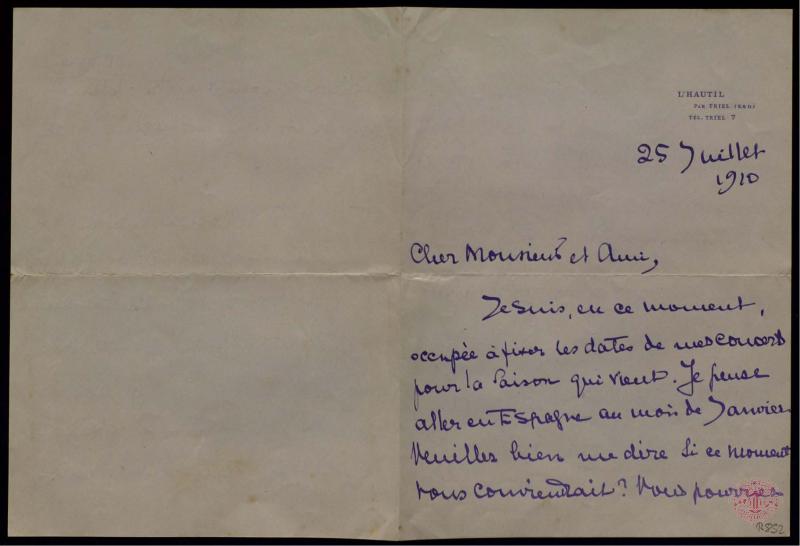 L'HAUTIL
PAR TRIEL (S&O)
TÉL. TRIEL 7
25 Juillet
1910
Cher Monsieur et Ami,
Je suis, en ce moment,
occupée à fixer les dates de mes concerts
pour la Saison qui vient. Je pense
aller en Espagne au mois de Janvier
Veuillez bien me dire Si ce moment
vous conviendrait? Vous pourriez
R852